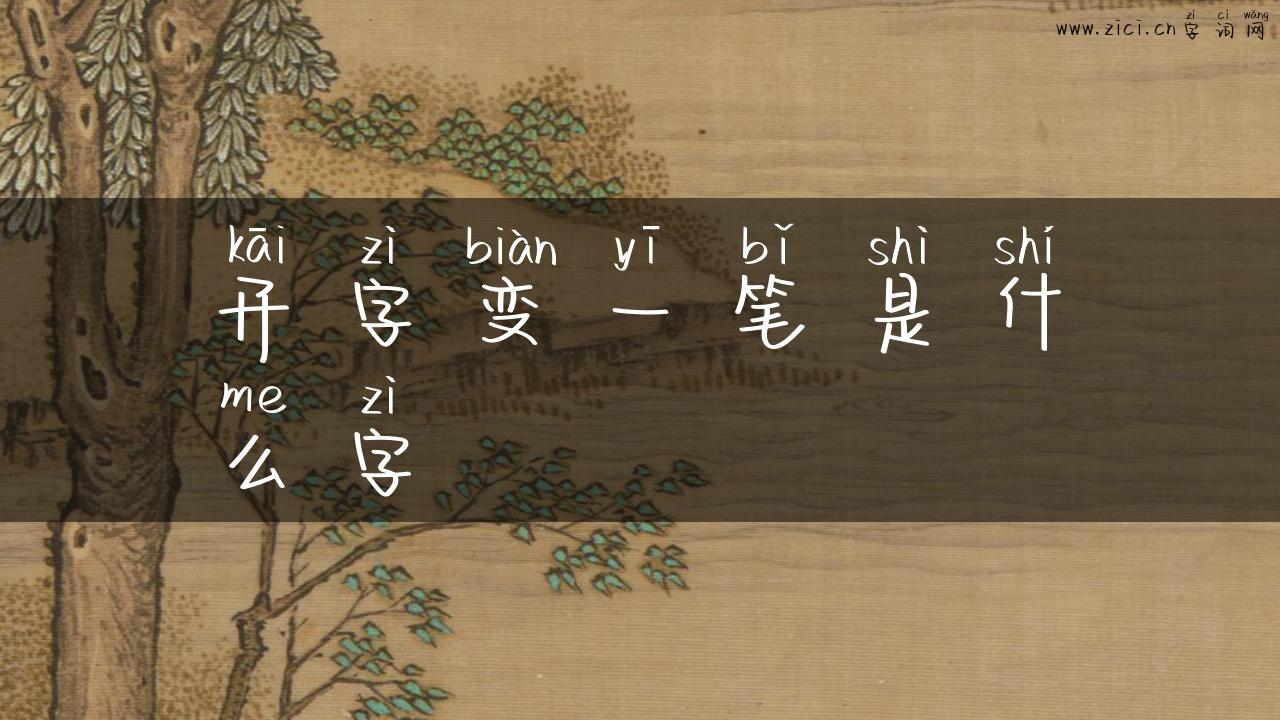 zì cí wǎng
www.zici.cn 字词网
kāi zì biàn yī bǐ shì shí
开字变一笔是什
me zì
么字